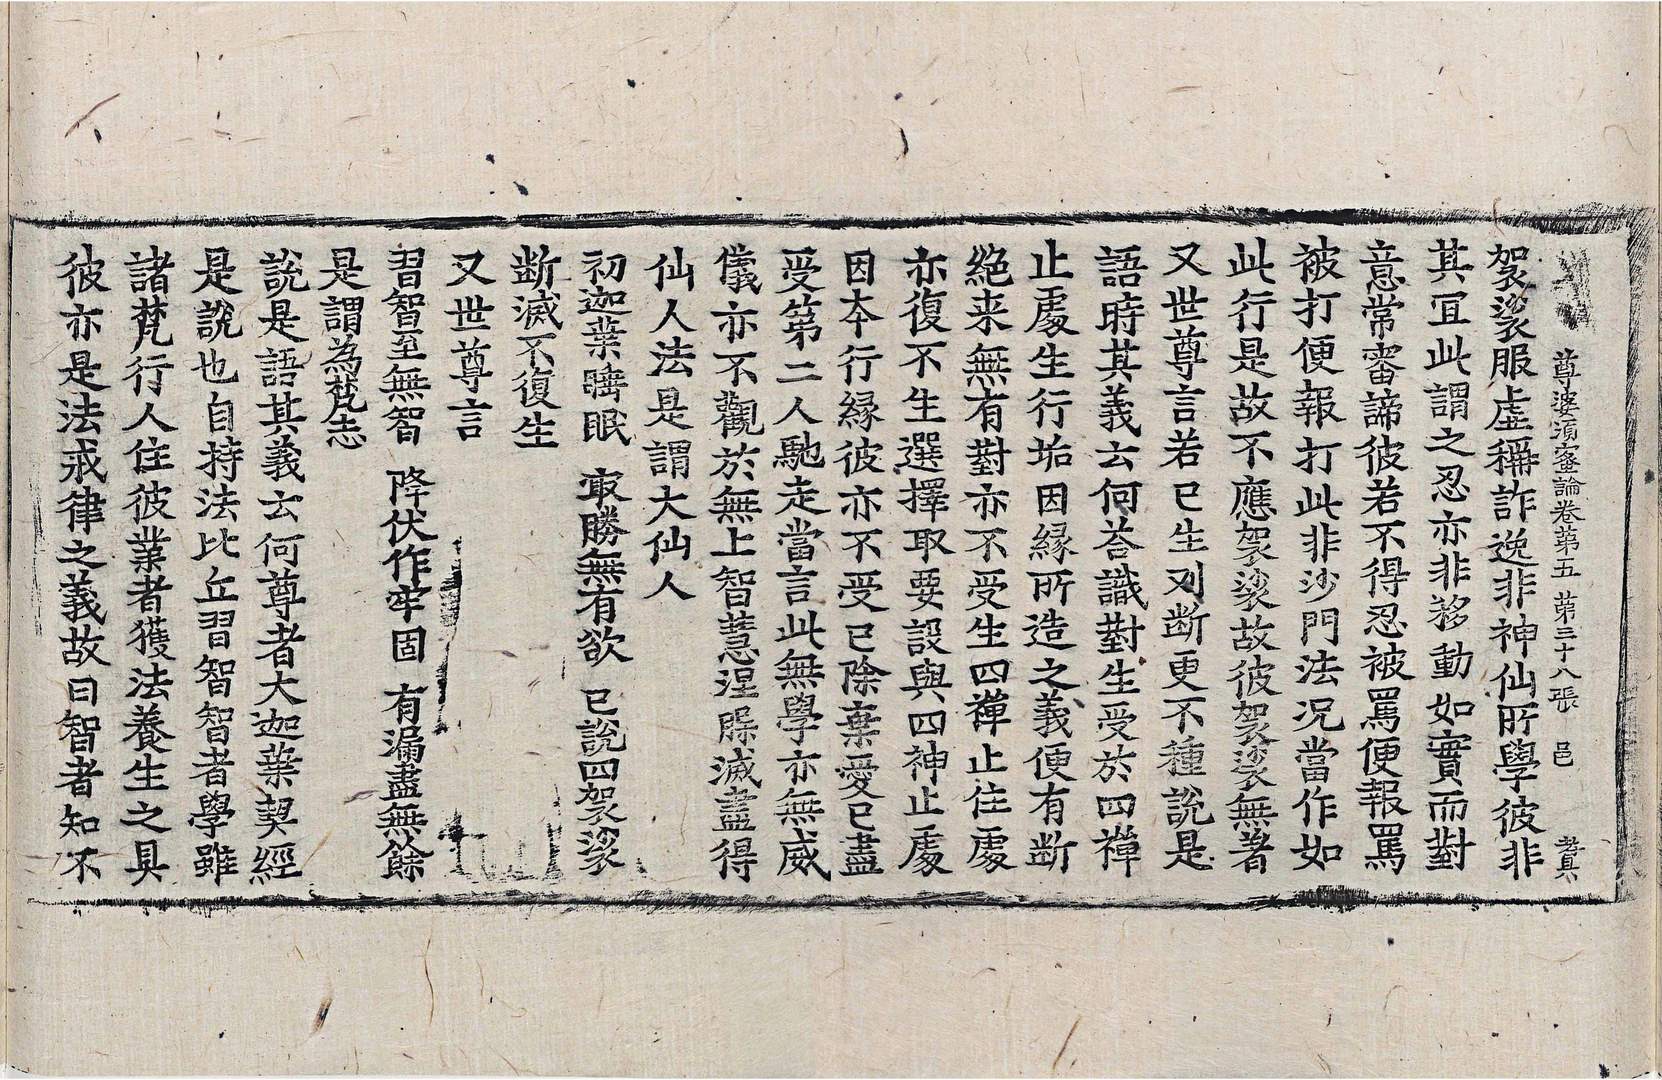 尊婆湏蜜論卷第五 第三十八張 邑
袈裟服虛稱詐逸非神仙所學彼非
其冝此謂之忍亦非移動如實而對
意常審諦彼若不得忍被罵便報罵
被打便報打此非沙門法况當作如
此行是故不應袈裟故彼袈裟無著
又世尊言若已生则断更不種說是
語時其義云何荅識對生受於四禪
止處生行垢因緣所造之義便有断
絕来無有對亦不受生四禪止住處
亦復不生選擇取要設與四神止處
因本行緣彼亦不受已除棄愛已盡
受第二人馳走當言此無學亦無威
儀亦不觀於無上智慧涅槃滅盡得
仙人法是謂大仙人
初迦葉睡眠 㝡勝無有欲 已說四袈裟
断滅不復生
又世尊言
習智至無智 降伏作牢固 有漏盡無餘
是謂為梵志
說是語其義云何尊者大迦葉契經
是說也自持法比丘習智智者學雖
諸梵行人住彼業者獲法養生之具
彼亦是法戒律之義故曰智者知不